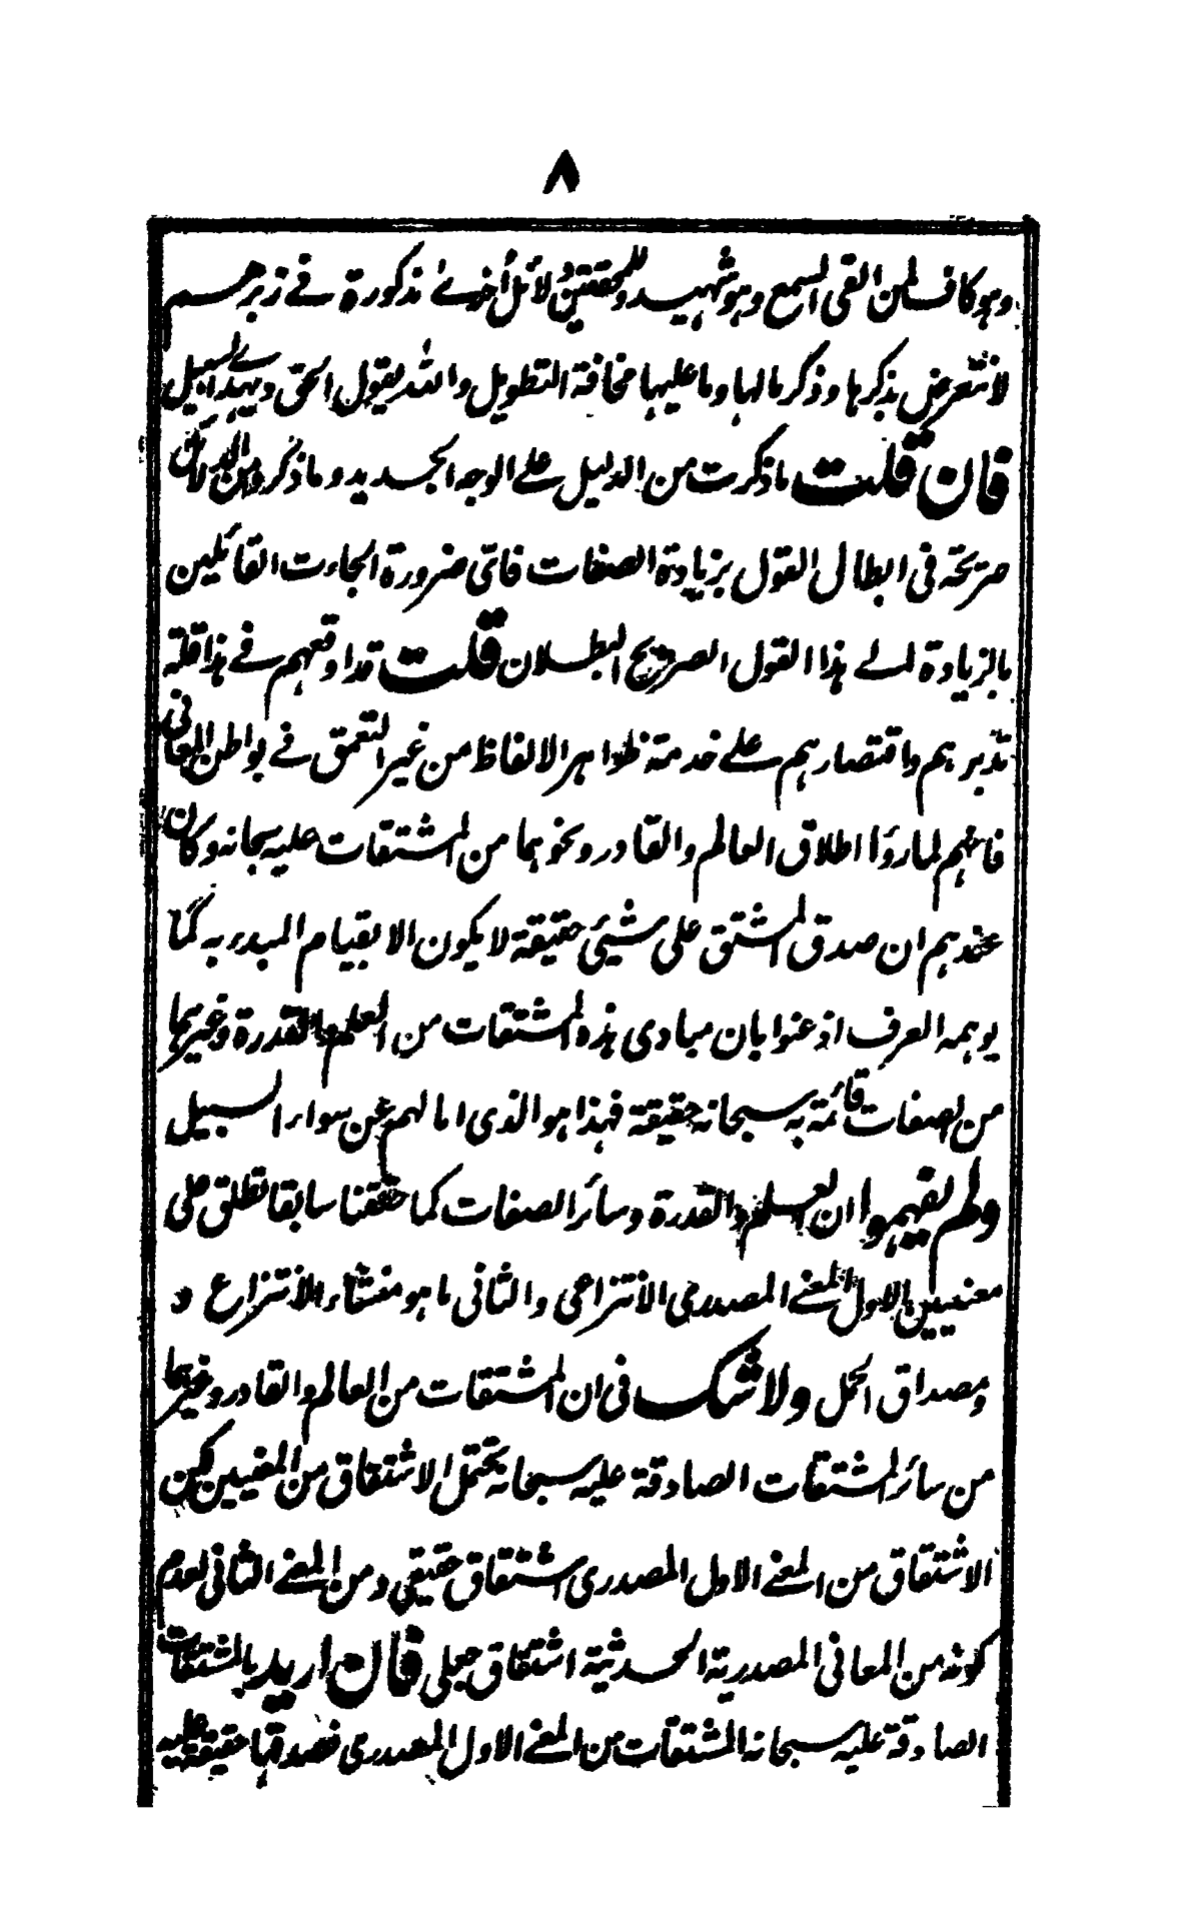 ٨
وهو كاف لمن القى السمع وهو شهيد وللمحققين دلائل أخرى مذكورة في زبرهم
لا نتعرض بذكرها وذكر مالها وما عليها مخافة التطويل والله يقول الحق ويهدي السبيل
فان قلت ما ذكرت من الدليل على الوجه الجديد وما ذكروه من الدلائل
صريحة في ابطال القول بزيادة الصفات فأي ضرورة الجاءت القائلين
بالزيادة الى هذا القول الصريح البطلان قلت قد اوقعهم في هذا قلة
تدبرهم واقتصارهم على خدمة ظواهر الالفاظ من غير التعمق في بواطن المعاني
فانهم لما رؤا اطلاق العالم والقادر ونحوهما من المشتقات عليه سبحانه وكان
عندهم ان صدق المشتق على شيئ حقيقة لا يكون الا بقيام المبدء به كما
يوهمه العرف اذعنوا بان مبادى هذه المشتقات من العلم والقدرة وغيرهما
من الصفات قائمة به سبحانه حقيقة فهذا هو الذى امالهم عن سواء السبيل
ولم يفهموا ان العلم والقدرة وسائر الصفات كما حققنا سابقا تطلق على
معنيين الاول المعنى المصدري الانتزاعي والثاني ما هو منشاء الانتزاع و
مصداق الحمل ولا شك في ان المشتقات من العالم والقادر وغيرهما
من سائر المشتقات الصادقة عليه سبحانه يحتمل الاشتقاق من المعنيين لكن
الاشتقاق من المعنى الاول المصدرى اشتقاق حقيقي ومن المعنى الثاني لعدم
كونه من المعاني المصدرية الحدثية اشتقاق جعلى فان اريد بالمشتقات
الصادقة عليه سبحانه المشتقات من المعنى الاول المصدري فصدقها حقيقة عليه